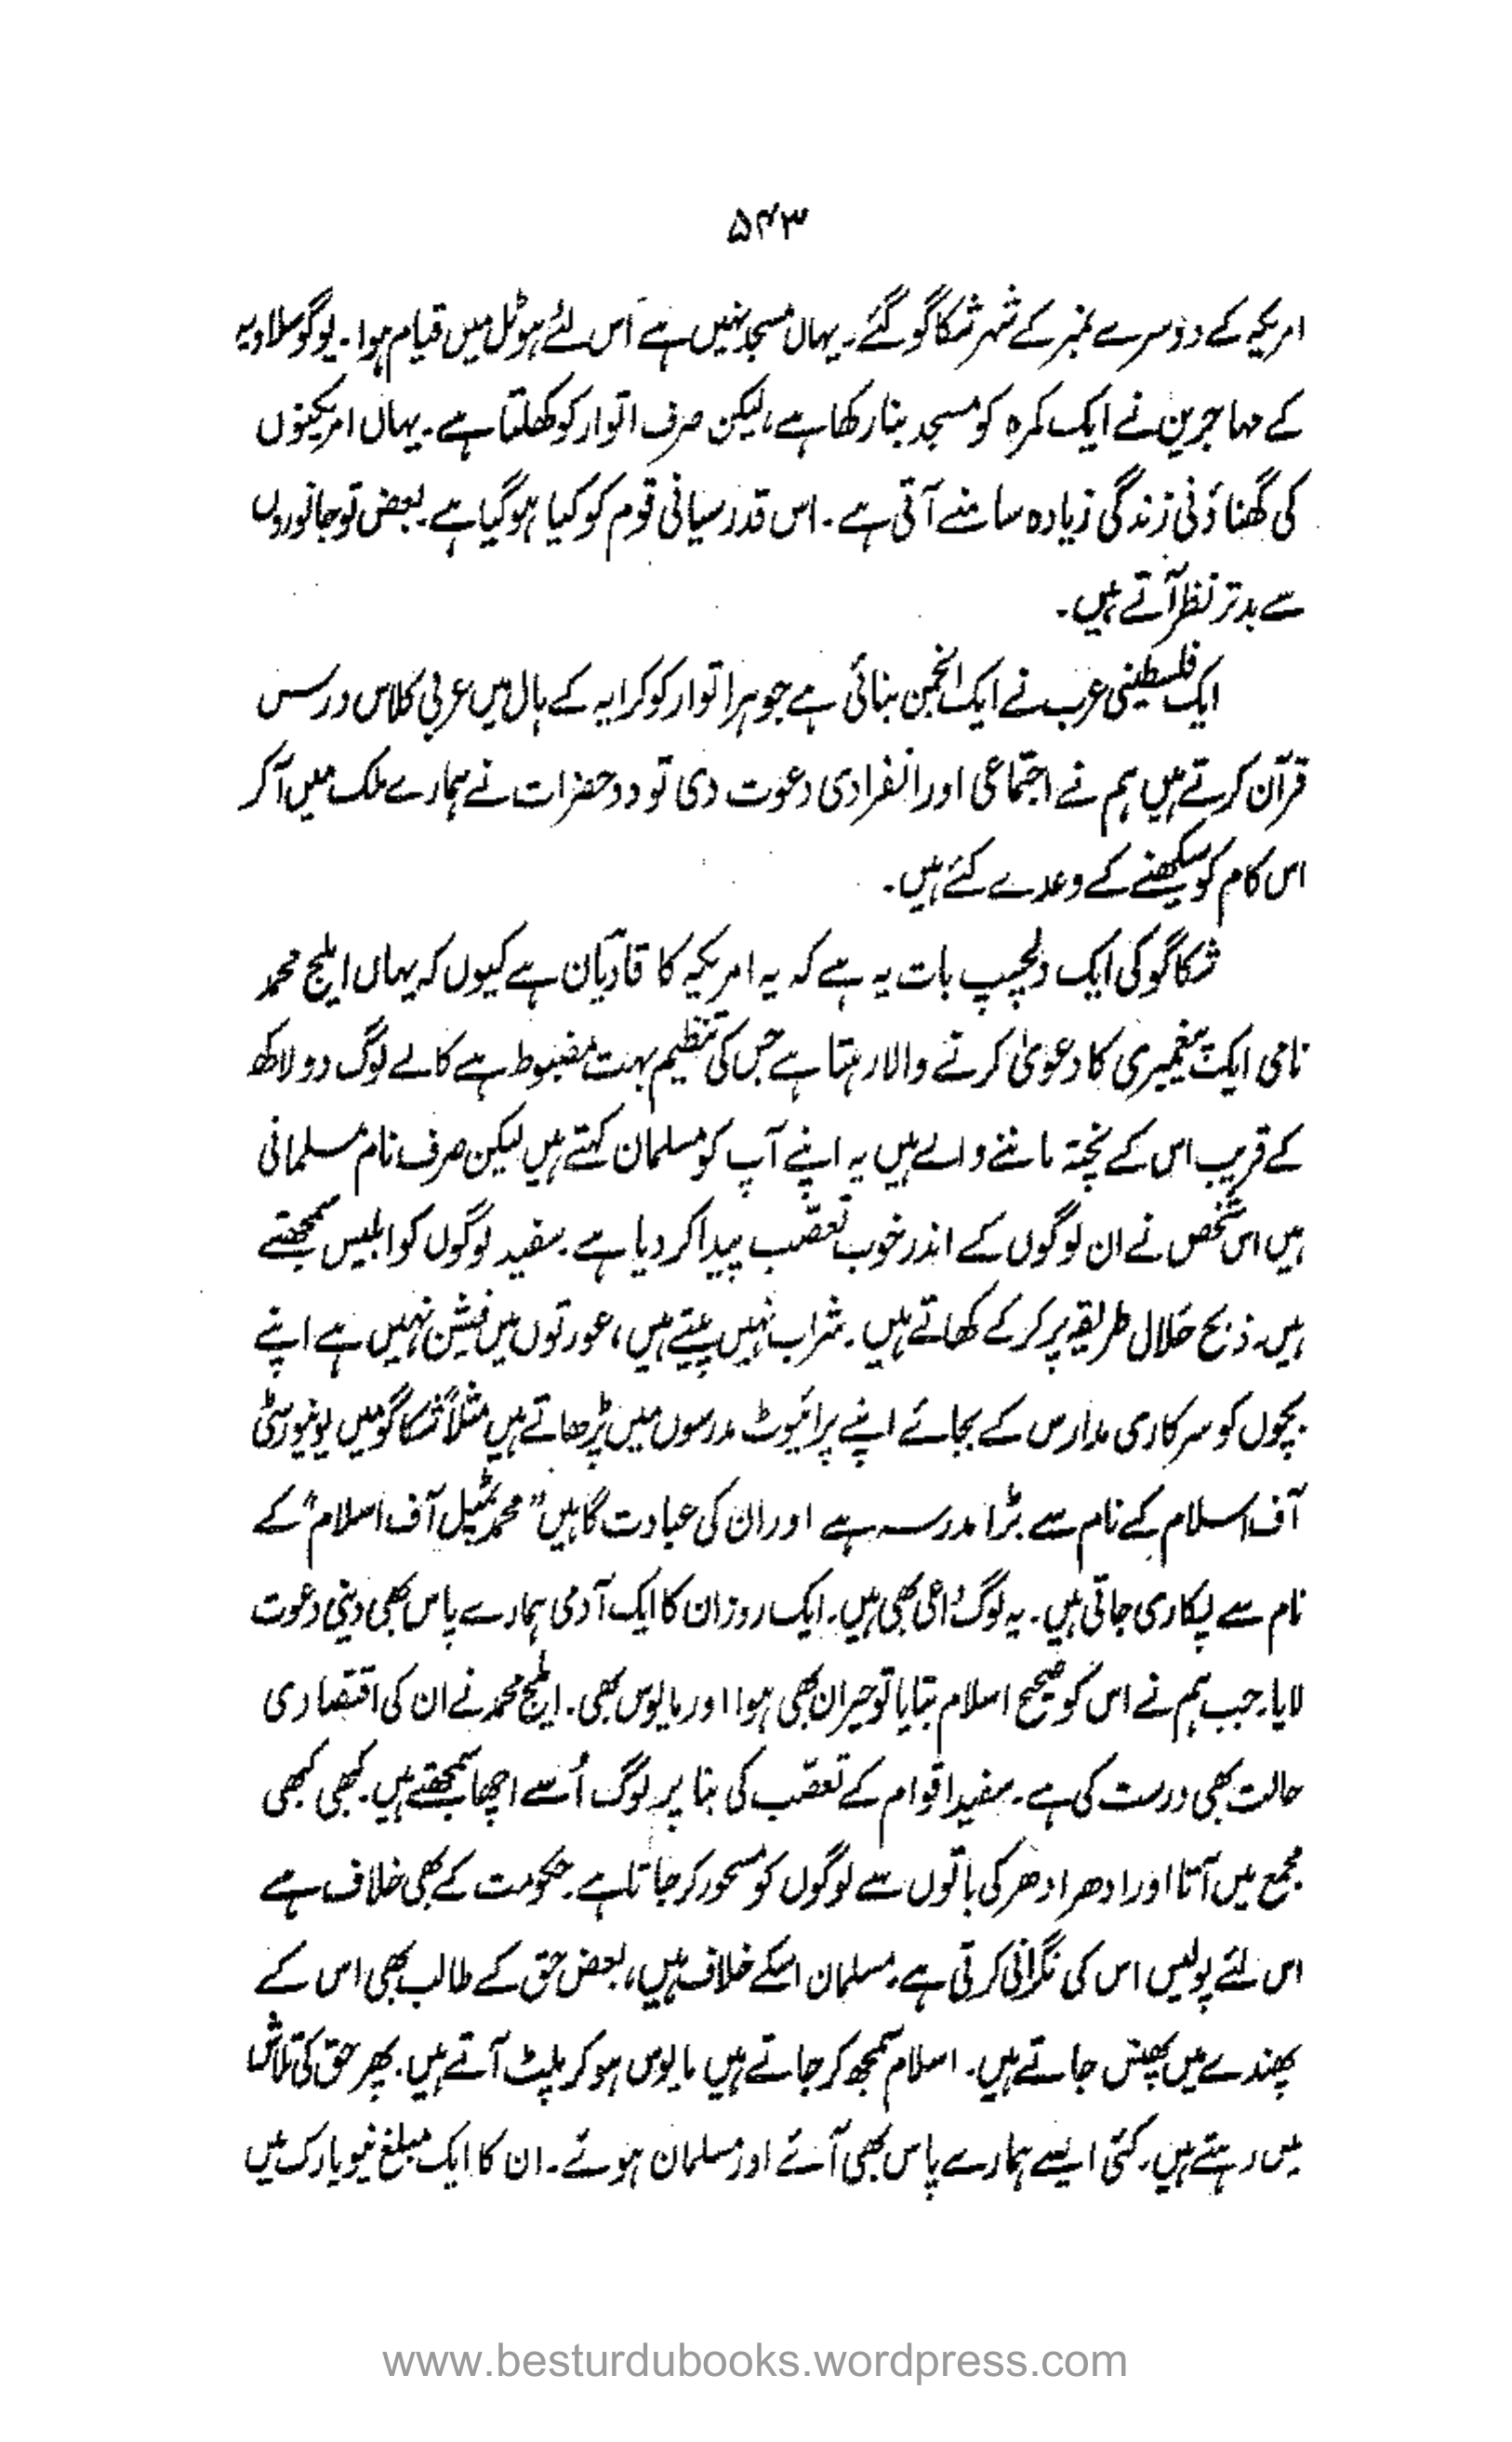 ۵۴۳
امریکہ کے دوسرے نمبر کے شہر شکاگو گئے۔ یہاں مسجد نہیں ہے اس لئے ہوٹل میں قیام ہوا۔ یوگوسلاویہ
کے مہاجرین نے ایک کمرہ کو مسجد بنا رکھا ہے، لیکن صرف اتوار کو کھلتا ہے۔ یہاں امریکیوں
کی گھناؤنی زندگی زیادہ سامنے آتی ہے۔ اس قدر سیانی قوم کو کیا ہوگیا ہے۔ بعض تو جانوروں
سے بدتر نظر آتے ہیں۔
ایک فلسطینی عرب نے ایک انجمن بنائی ہے جو ہر اتوار کو کرایہ کے ہال میں عربی کلاس و درس
قرآن کرتے ہیں ہم نے اجتماعی اور انفرادی دعوت دی تو دو حضرات نے ہمارے ملک میں آکر
اس کام کو سیکھنے کے وعدے کئے ہیں۔
شکاگو کی ایک دلچسپ بات یہ ہے کہ یہ امریکہ کا قادیان ہے کیوں کہ یہاں ایلیج محمد
نامی ایک پیغمبری کا دعویٰ کرنے والا رہتا ہے جس کی تنظیم بہت مضبوط ہے کالے لوگ دو لاکھ
کے قریب اس کے پختہ ماننے والے ہیں یہ اپنے آپ کو مسلمان کہتے ہیں لیکن صرف نام مسلمانی
ہیں اس شخص نے ان لوگوں کے اندر خوب تعصّب پیدا کر دیا ہے۔ سفید لوگوں کو ابلیس سمجھتے
ہیں۔ ذبح حلال طریقہ پر کرکے کھاتے ہیں۔ شراب نہیں پیتے ہیں، عورتوں میں فیشن نہیں ہے اپنے
بچوں کو سرکاری مدارس کے بجائے اپنے پرائیوٹ مدرسوں میں پڑھاتے ہیں مثلاً شکاگو میں یونیورسٹی
آف اسلام کے نام سے بڑا مدرسہ ہے اور ان کی عبادت گاہیں "محمد ٹمپل آف اسلام" کے
نام سے پکاری جاتی ہیں۔ یہ لوگ داعی بھی ہیں۔ ایک روز ان کا ایک آدمی ہمارے پاس بھی دینی دعوت
لایا۔ جب ہم نے اس کو صحیح اسلام بتایا تو حیران بھی ہوا اور مایوس بھی۔ ایلیج محمد نے ان کی اقتصادی
حالت بھی درست کی ہے۔ سفید اقوام کے تعصّب کی بنا پر لوگ اُسے اچھا سمجھتے ہیں۔ کبھی کبھی
مجمع میں آتا اور ادھر ادھر کی باتوں سے لوگوں کو مسحور کر جاتا ہے۔ حکومت کے بھی خلاف ہے
اس لئے پولیس اس کی نگرانی کرتی ہے۔ مسلمان اسکے خلاف ہیں، بعض حق کے طالب بھی اس کے
پھندے میں پھنس جاتے ہیں۔ اسلام سمجھ کر جاتے ہیں مایوس ہو کر پلٹ آتے ہیں۔ پھر حق کی تلاش
میں رہتے ہیں۔ کئی ایسے ہمارے پاس بھی آئے اور مسلمان ہوئے۔ ان کا ایک مبلغ نیویارک میں
www.besturdubooks.wordpress.com